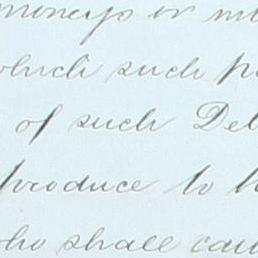 moneys or
which such
of such
produce to
who shall